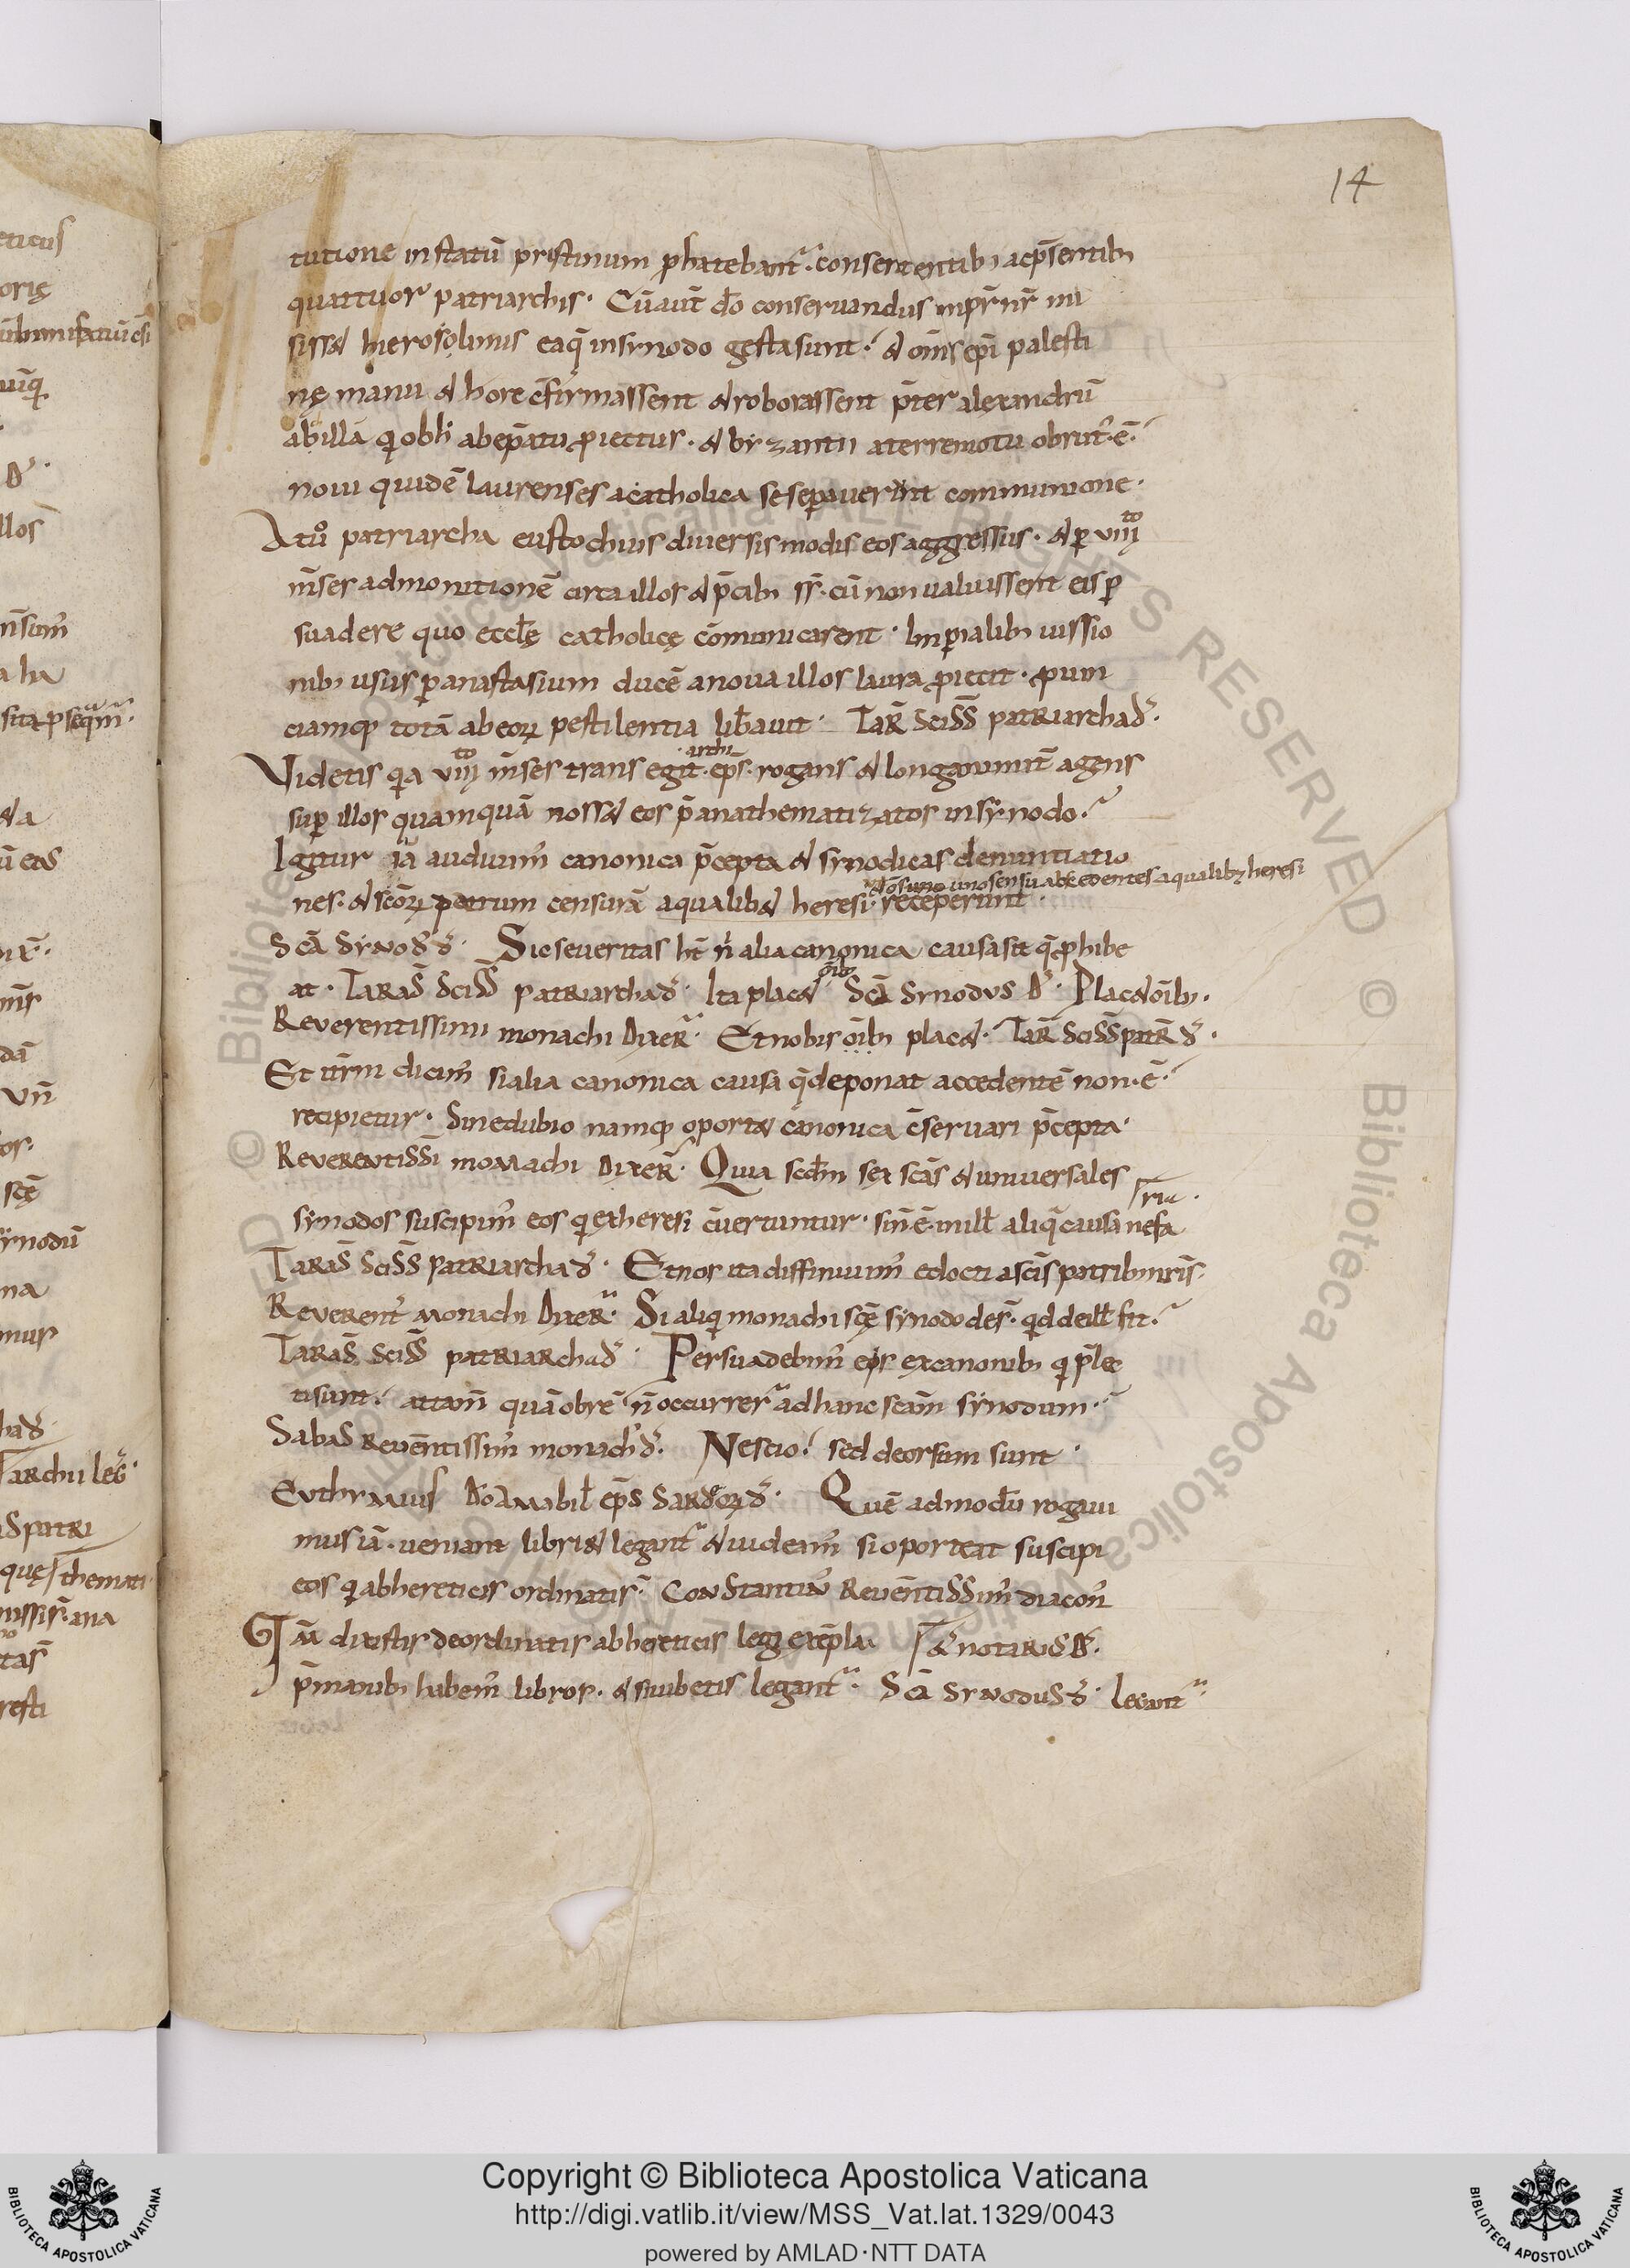 14
tutione in statū pristinum phatebant᷑. consentientib; ac p̄sentib;
quattuor patriarchis. Cū aut̄ d̄o conseruandus inpr̄ nr̄ mi
siss& hierosolimis eaq̄ in synodo gesta sunt. & om̄s ep̄i palesti
nę manu & hore c̄firmassent & roborassent p̄ter alexandrū
abillā q̇ ob h̄ ab ep̄atu ꝓiectus. & byzantii a terremotu obrut᷒. ē.
noui quidē laurenses a catholica se sepauerint communione.
At u̾ patriarcha eustochius diuersis modis eos aggressus. & ꝑ viiij to
m̄ses admonitionē circa illos & p̄cib; cū non ualuissent eis ꝑ
suadere quo eccłę catholicę cōmunicarent. Imꝑialib; iussio
nib; usus ꝑ anastasium ducē a noua illos laura ꝓiecit. ꝓuin
ciamq; totā ab eoꝝ pestilentia lib̄auit. Tar̄ scis̄s patriarcha d̄.
Videtis q̇a viiij to m̄ses transegit archi ep̄s. rogans & longanimit̄ agens
suꝑ illos quamquā noss& eos p̄anathematizatos in synodo.
Igitur iā audiuim᷒ canonica p̄cepta & synodicas denuntiatio
nes. & sc̄oꝝ patrum censurā a qualib& heresi. receperunt.
uno sensu accedentes a qualib; heresi
Sc̄a synod᷒ d̄. Sic seueritas hēt n̄ alia canonica causa sit q̄ ꝓhibe
at. Taras̄ scis̄s patriarcha d̄. Ita plac& ōib; Sc̄a synodus d̄. Plac& ōib;.
Reuerentissimi monachi dixer̄. Et nobis ōib; plac&. Tar̄ scis̄s patr̄ d̄.
Et itr̄m dicim᷒ si alia canonica causa q̄ deponat accedentē non ē.
recipietur. Sine dubio namq; oport& canonica c̄seruari p̄cepta.
Reuerentis̄si monachi dixer̄. Quia scdm̄ sex sc̄as & uniuersales
synodos suscipim᷒ eos q̇ ex heresi c̄uertuntur. sin̄ ē. in ill̄ aliq̄ causa nefa
ria.
Taras̄ scis̄s patriarcha d̄. Et nos ita diffiniuim᷒ edocti a sc̄is patrib; nr̄is.
Reuerent᷒ monachi dixer̄. Si aliq̇ monachi sc̄ę synodo des̄. qd de ill̄ fit.
Taras̄ scis̄s patriarcha d̄. Persuadebim᷒ eos ex canonib; q̇ p̄lec
ti sunt. attam̄ quā ob rē n̄ occurrer̄ ad hanc sc̄am synodum.
Sabas reuēntissim᷒ monach᷒ d̄. Nescio. sed deorsum sunt.
Euthymius d̄o amabil̄ ep̄s sardoꝝ d̄. Quē admodū rogaui
mus iā. ueniant libri & legant᷑ & uideam᷒ si oporteat suscipi
eos q̇ ab hereticis ordinatis̄. Constantin᷒ reuēntissim᷒ diacon᷒
Qm̄ dixistis de ordinatis ab hereticis legi exēpla & notari᷒ d̄.
p̄manib; habem᷒ libros. & si iubetis legant᷑. Sc̄a synodus d̄. Legant᷑.
eticus
orię
d̄.
llos
& a
ū eos
dā
vn̄
scę
ynodū
na
mur
ha d̄.
archii
s patri
que themati
resti
© Biblioteca Apostolica Vaticana - ALL RIGHTS RESERVED © Biblioteca Apostolica Vaticana
BIBLIOTECA APOSTOLICA VATICANA
Copyright © Biblioteca Apostolica Vaticana
http://digi.vatlib.it/view/MSS_Vat.lat.1329/0043
powered by AMLAD·NTT DATA
BIBLIOTECA APOSTOLICA VATICANA